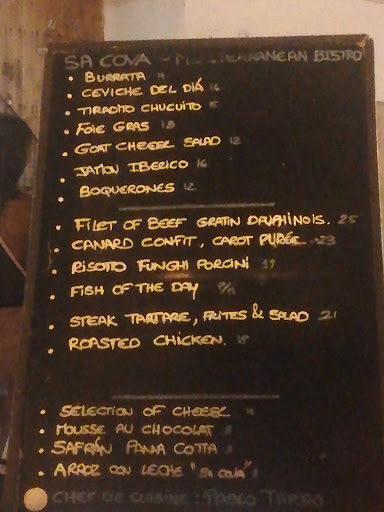 SA COVA - MEDITERRANEAN BISTRO
• BURRATA
• CEVICHE DEL DIÁ 16
• TIRADITO CHUCUITO
• FOIE GRAS 18
• GOAT CHEESE SALAD 12
• JAMON IBERICO 16
• BOQUERONES 12
• FILET OF BEEF GRATIN DAUPHINOIS. 25
• CANARD CONFIT, CAROT PURÉE 23
• RISOTTO FUNGHI PORCINI
• FISH OF THE DAY
• STEAK TARTARE, FRITES & SALAD 21
• ROASTED CHICKEN.
• SELECTION OF CHEESE
• MOUSSE AU CHOCOLAT
• SAFRÁN PANA COTTA
• ARROZ CON LECHE "SA COVA"
CHEF DE CUISINE: PABLO